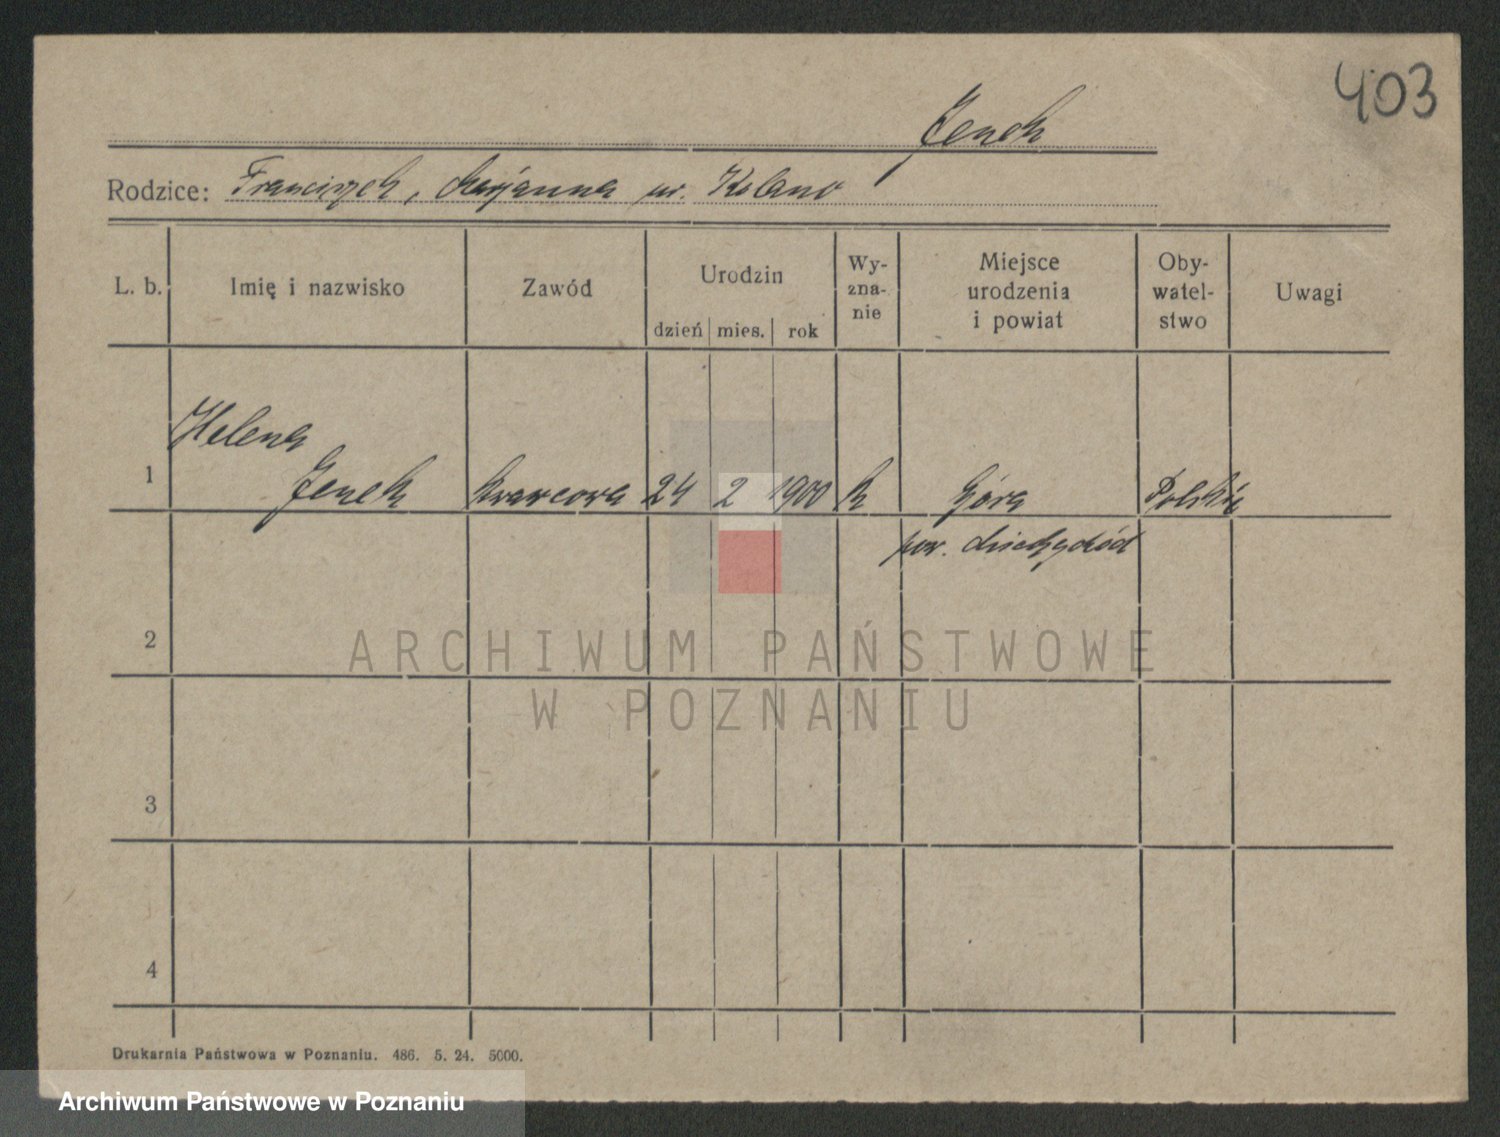 403
Jenek
Rodzice: Franciszek, Marjanna ur. Kolano
L. b.
Imię i nazwisko
Zawód
Urodzin
dzień mies. rok
Wy-
zna-
nie
Miejsce
urodzenia
i powiat
Oby-
watel-
stwo
Uwagi
Helena
1 Jenek krawcowa 24 2 1900 k Góra Polskie
pow. Międzychód
2
3
4
ARCHIWUM PAŃSTWOWE
W POZNANIU
Drukarnia Państwowa w Poznaniu. 486. 5. 24. 5000.
Archiwum Państwowe w Poznaniu